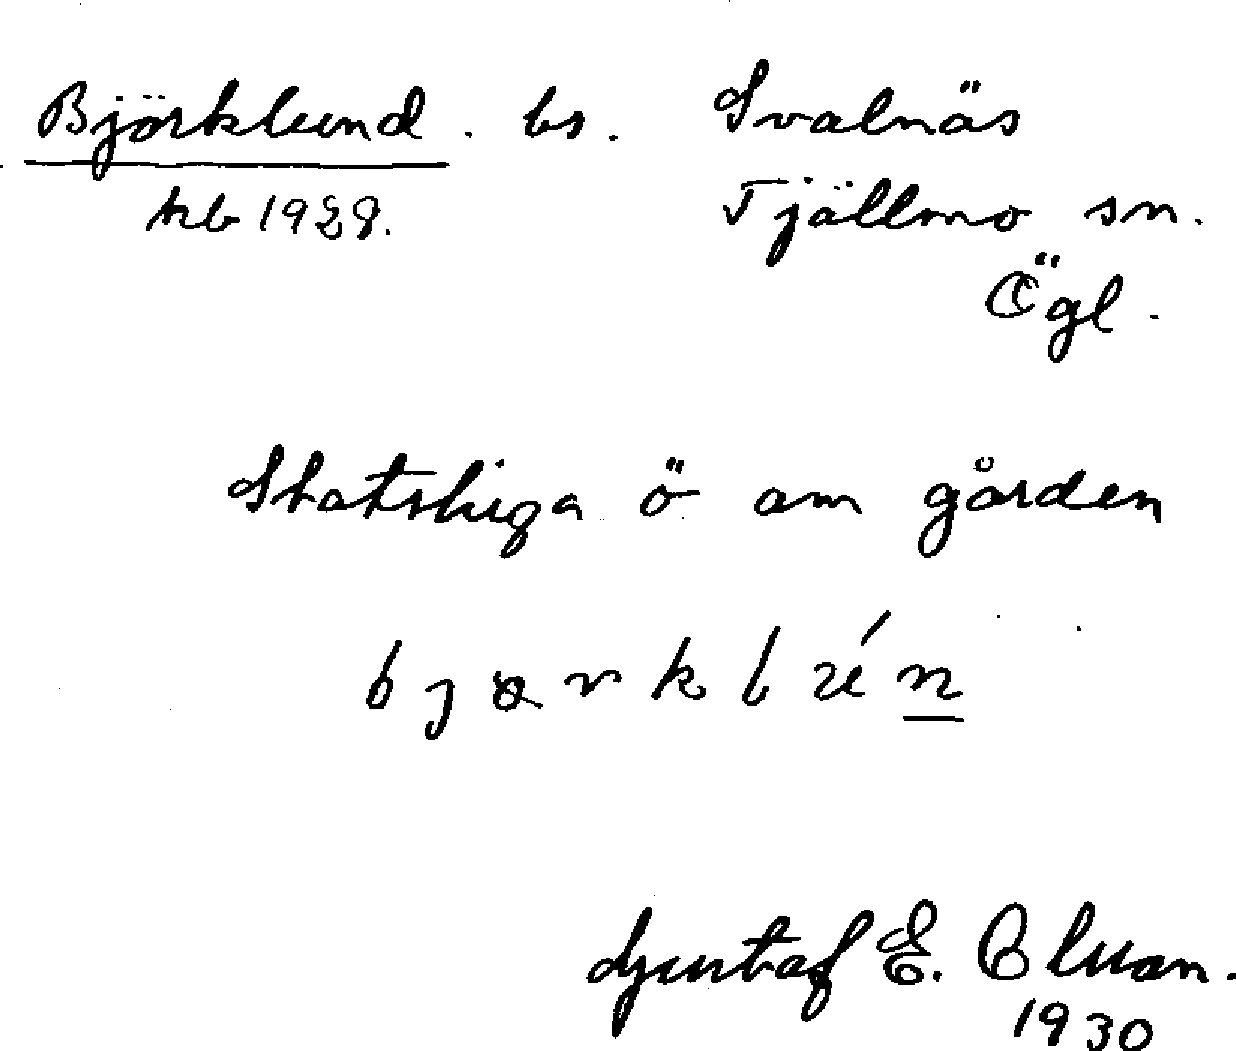 Björklund. bs. Svalnäs
kb 1928. Tjällmo sn.
Ögl.
Skatskiga ö om gården
Gustaf E. Elman.
1930